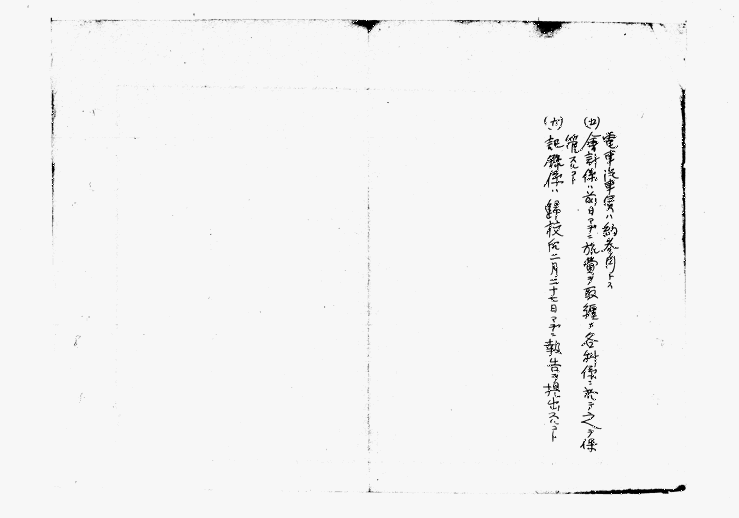 電車汽車賃ハ約参円トス
(五)会計係ハ前日マデニ旅費ヲ取纏メ各科係ニ於テ之ヲ保
管スルコト
(六)記録係ハ帰校后二月二十七日マデニ報告ヲ提出スルコト